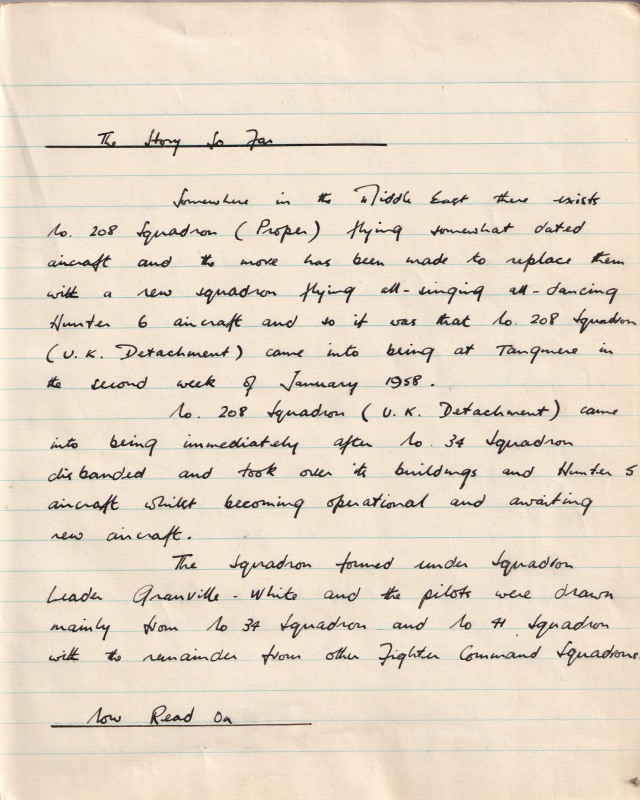 The Story So Far
Somewhere in the Middle East there exists
No. 208 Squadron (Proper) flying somewhat dated
aircraft and the move has been made to replace them
with a new squadron flying all-singing all-dancing
Hunter 6 aircraft and so it was that No. 208 Squadron
(U.K. Detachment) came into being at Tangmere in
the second week of January 1958.
No. 208 Squadron (U.K. Detachment) came
into being immediately after No. 34 Squadron
disbanded and took over its buildings and Hunter 5
aircraft whilst becoming operational and awaiting
new aircraft.
The Squadron formed under Squadron
Leader Granville-White and the pilots were drawn
mainly from No 34 Squadron and No 41 Squadron
with the remainder from other Fighter Command Squadrons.
Now Read On